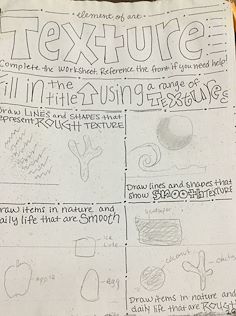 element of art
Texture
Complete the worksheet. Reference the front if you need help!
Fill in the title ↑ using a range of TEXTURES
Draw LINES and SHAPES that
represent ROUGH TEXTURE
Draw lines and shapes that
show SMOOTH TEXTURE
Draw items in nature and
daily life that are Smooth
ice
cube
apple
egg
coconut
Draw items in nature and
daily life that are ROUGH